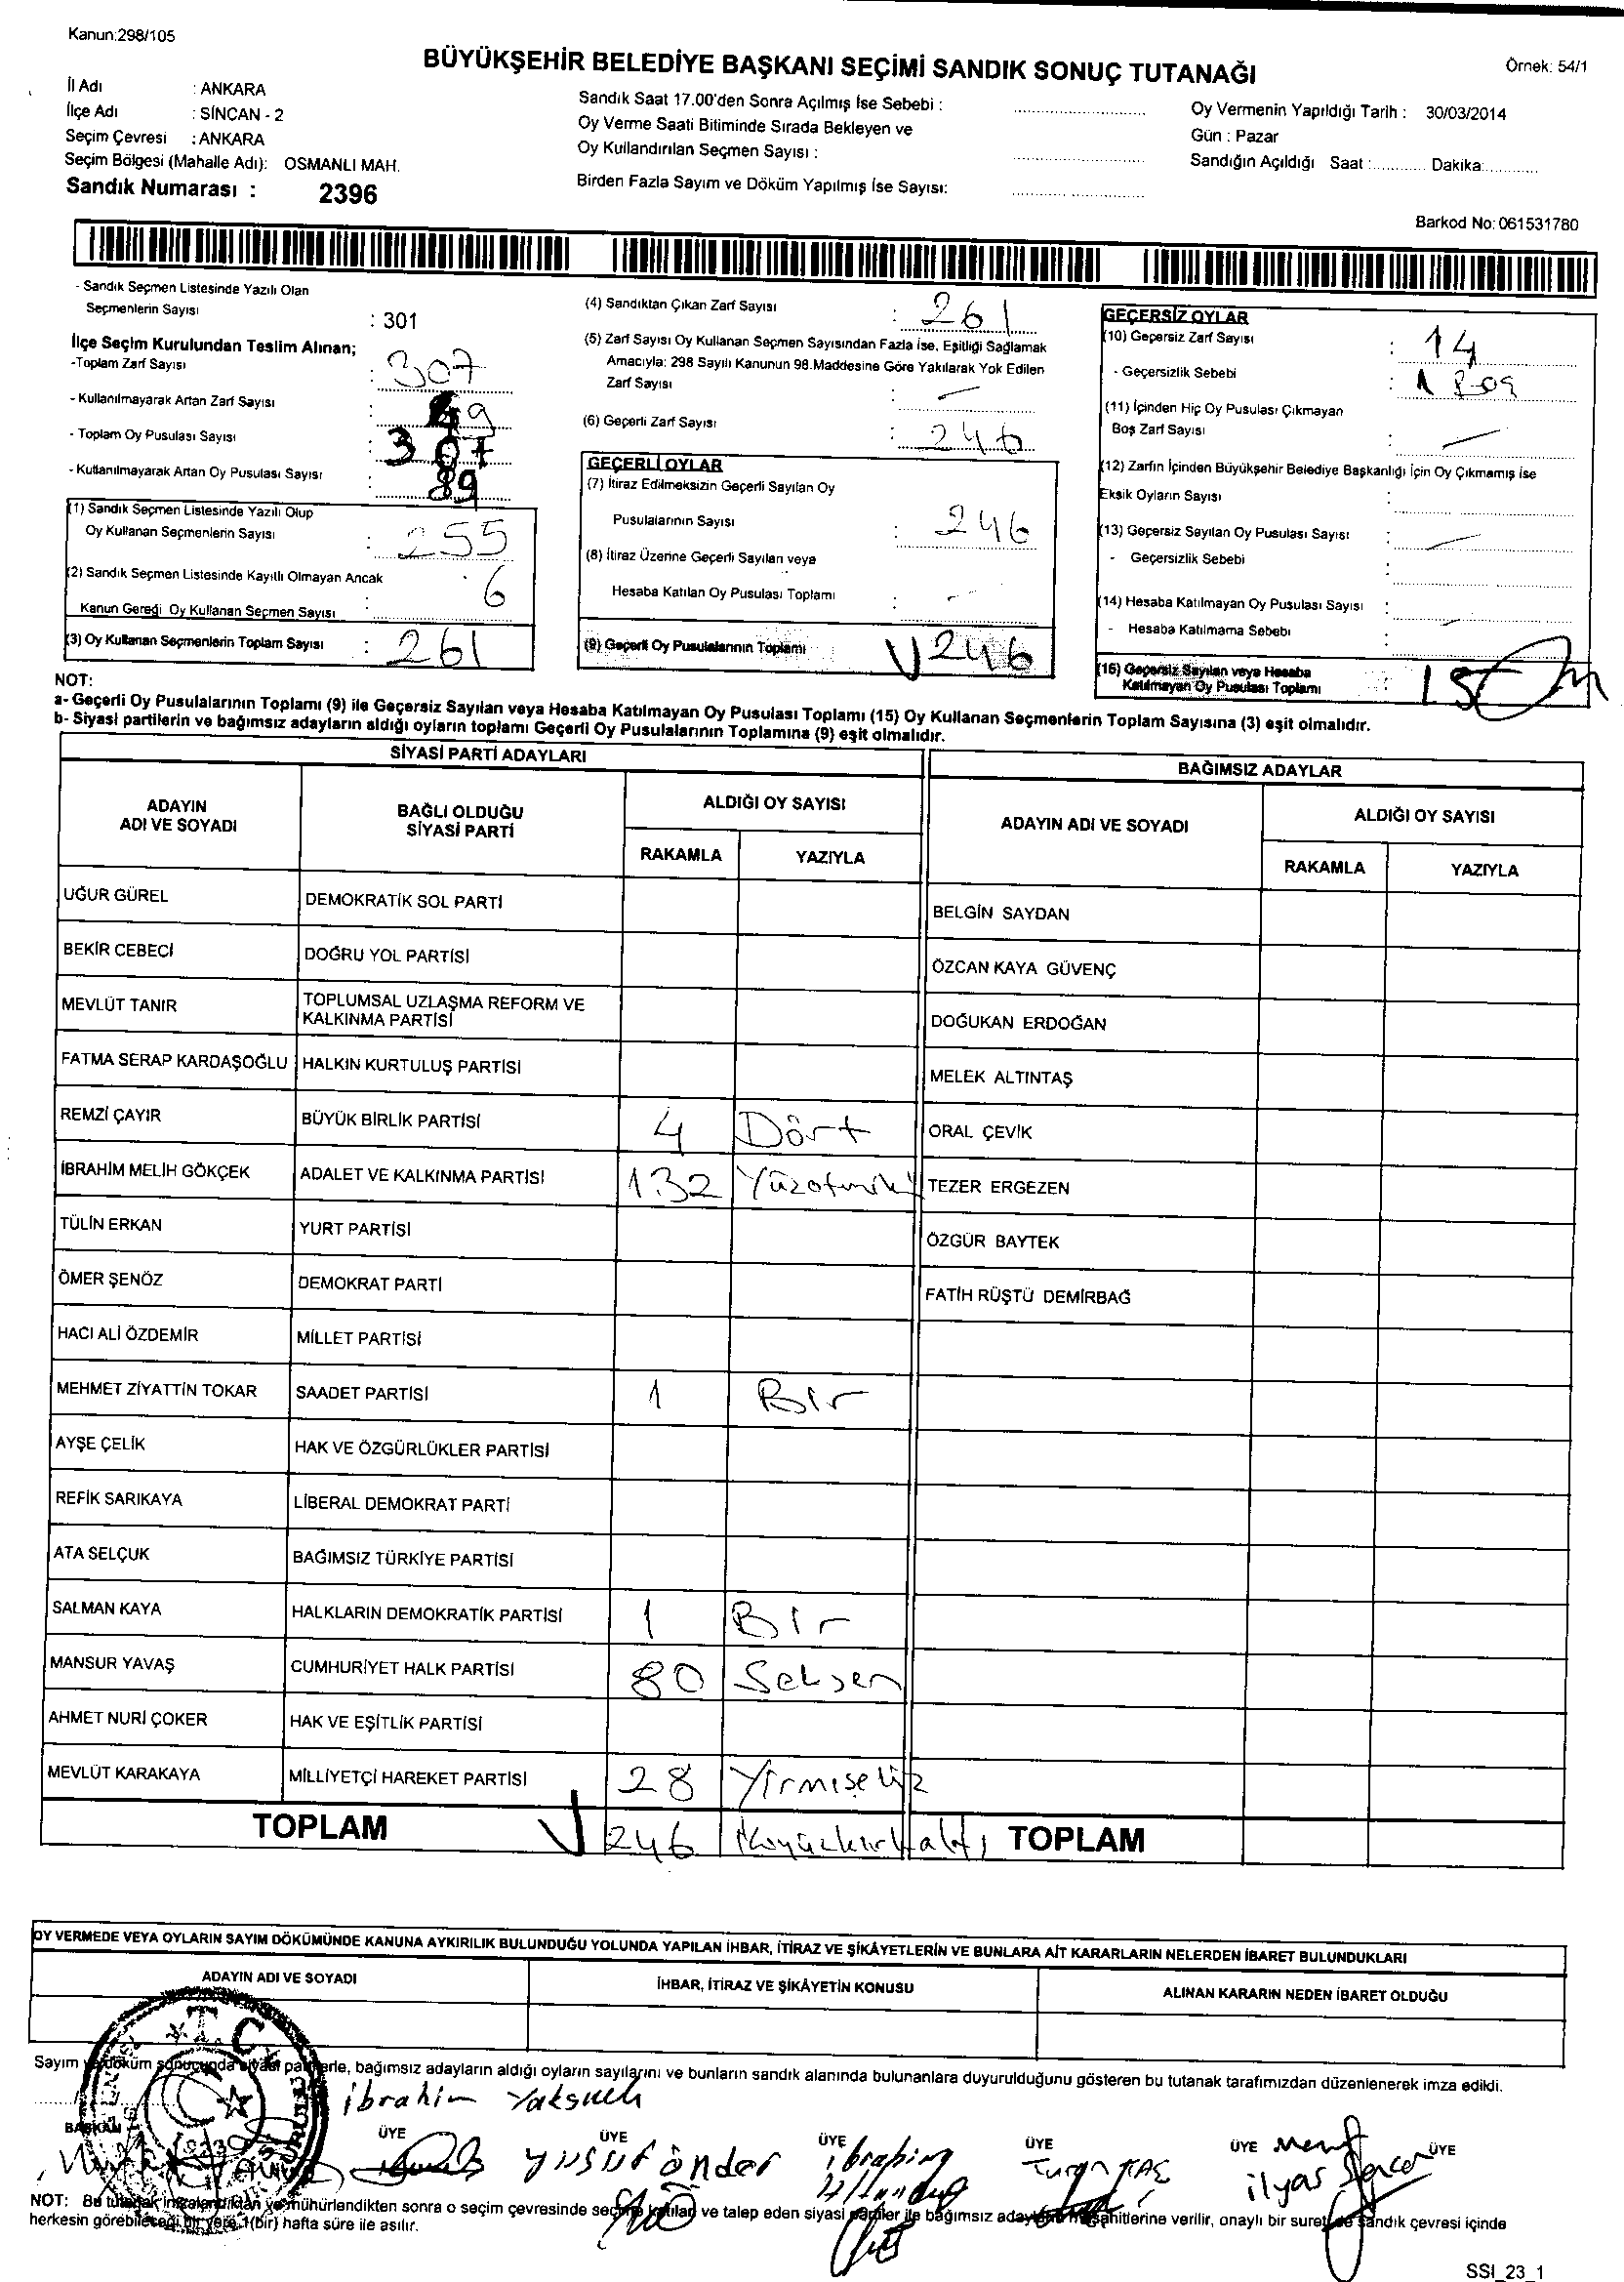 Kanun:298/105
BÜYÜKŞEHİR BELEDİYE BAŞKANI SEÇİMİ SANDIK SONUÇ TUTANAĞI
Örnek: 54/1
İl Adı : ANKARA
İlçe Adı : SİNCAN - 2
Seçim Çevresi : ANKARA
Seçim Bölgesi (Mahalle Adı): OSMANLI MAH.
Sandık Numarası : 2396
Sandık Saat 17.00'den Sonra Açılmış İse Sebebi :
Oy Verme Saati Bitiminde Sırada Bekleyen ve
Oy Kullandırılan Seçmen Sayısı :
Birden Fazla Sayım ve Döküm Yapılmış İse Sayısı:
Oy Vermenin Yapıldığı Tarih : 30/03/2014
Gün : Pazar
Sandığın Açıldığı Saat : Dakika:
Barkod No: 061531780
- Sandık Seçmen Listesinde Yazılı Olan
Seçmenlerin Sayısı : 301
İlçe Seçim Kurulundan Teslim Alınan;
-Toplam Zarf Sayısı : 307
- Kullanılmayarak Artan Zarf Sayısı :
- Toplam Oy Pusulası Sayısı : 307
- Kullanılmayarak Artan Oy Pusulası Sayısı : 89
(1) Sandık Seçmen Listesinde Yazılı Olup
Oy Kullanan Seçmenlerin Sayısı : 255
(2) Sandık Seçmen Listesinde Kayıtlı Olmayan Ancak
Kanun Gereği Oy Kullanan Seçmen Sayısı : 6
(3) Oy Kullanan Seçmenlerin Toplam Sayısı : 261
(4) Sandıktan Çıkan Zarf Sayısı : 261
(5) Zarf Sayısı Oy Kullanan Seçmen Sayısından Fazla İse, Eşitliği Sağlamak
Amacıyla: 298 Sayılı Kanunun 98.Maddesine Göre Yakılarak Yok Edilen
Zarf Sayısı : —
(6) Geçerli Zarf Sayısı : 246
GEÇERLİ OYLAR
(7) İtiraz Edilmeksizin Geçerli Sayılan Oy
Pusulalarının Sayısı : 246
(8) İtiraz Üzerine Geçerli Sayılan veya
Hesaba Katılan Oy Pusulası Toplamı : —
(9) Geçerli Oy Pusulalarının Toplamı 246
GEÇERSİZ OYLAR
(10) Geçersiz Zarf Sayısı : 14
- Geçersizlik Sebebi : 1 Boş
(11) İçinden Hiç Oy Pusulası Çıkmayan
Boş Zarf Sayısı : —
(12) Zarfın İçinden Büyükşehir Belediye Başkanlığı İçin Oy Çıkmamış ise
Eksik Oyların Sayısı :
(13) Geçersiz Sayılan Oy Pusulası Sayısı : —
- Geçersizlik Sebebi :
(14) Hesaba Katılmayan Oy Pusulası Sayısı : —
- Hesaba Katılmama Sebebi :
(15) Geçersiz Sayılan veya Hesaba
Katılmayan Oy Pusulası Toplamı : 15
NOT:
a- Geçerli Oy Pusulalarının Toplamı (9) ile Geçersiz Sayılan veya Hesaba Katılmayan Oy Pusulası Toplamı (15) Oy Kullanan Seçmenlerin Toplam Sayısına (3) eşit olmalıdır.
b- Siyasi partilerin ve bağımsız adayların aldığı oyların toplamı Geçerli Oy Pusulalarının Toplamına (9) eşit olmalıdır.
SİYASİ PARTİ ADAYLARI
ADAYIN ADI VE SOYADI
BAĞLI OLDUĞU SİYASİ PARTİ
ALDIĞI OY SAYISI
RAKAMLA YAZIYLA
UĞUR GÜREL DEMOKRATİK SOL PARTİ
BEKİR CEBECİ DOĞRU YOL PARTİSİ
MEVLÜT TANIR TOPLUMSAL UZLAŞMA REFORM VE KALKINMA PARTİSİ
FATMA SERAP KARDAŞOĞLU HALKIN KURTULUŞ PARTİSİ
REMZİ ÇAYIR BÜYÜK BİRLİK PARTİSİ 4 Dört
İBRAHİM MELİH GÖKÇEK ADALET VE KALKINMA PARTİSİ 132 Yüzotuziki
TÜLİN ERKAN YURT PARTİSİ
ÖMER ŞENÖZ DEMOKRAT PARTİ
HACI ALİ ÖZDEMİR MİLLET PARTİSİ
MEHMET ZİYATTİN TOKAR SAADET PARTİSİ 1 Bir
AYŞE ÇELİK HAK VE ÖZGÜRLÜKLER PARTİSİ
REFİK SARIKAYA LİBERAL DEMOKRAT PARTİ
ATA SELÇUK BAĞIMSIZ TÜRKİYE PARTİSİ
SALMAN KAYA HALKLARIN DEMOKRATİK PARTİSİ 1 Bir
MANSUR YAVAŞ CUMHURİYET HALK PARTİSİ 80 Seksen
AHMET NURİ ÇOKER HAK VE EŞİTLİK PARTİSİ
MEVLÜT KARAKAYA MİLLİYETÇİ HAREKET PARTİSİ 28 Yirmisekiz
TOPLAM 246 ikiyüzkırkaltı
BAĞIMSIZ ADAYLAR
ADAYIN ADI VE SOYADI
ALDIĞI OY SAYISI
RAKAMLA YAZIYLA
BELGİN SAYDAN
ÖZCAN KAYA GÜVENÇ
DOĞUKAN ERDOĞAN
MELEK ALTINTAŞ
ORAL ÇEVİK
TEZER ERGEZEN
ÖZGÜR BAYTEK
FATİH RÜŞTÜ DEMİRBAĞ
TOPLAM
OY VERMEDE VEYA OYLARIN SAYIM DÖKÜMÜNDE KANUNA AYKIRILIK BULUNDUĞU YOLUNDA YAPILAN İHBAR, İTİRAZ VE ŞİKÂYETLERİN VE BUNLARA AİT KARARLARIN NELERDEN İBARET BULUNDUKLARI
ADAYIN ADI VE SOYADI
İHBAR, İTİRAZ VE ŞİKÂYETİN KONUSU
ALINAN KARARIN NEDEN İBARET OLDUĞU
Sayım ve döküm sonucunda siyasi partilerle, bağımsız adayların aldığı oyların sayılarını ve bunların sandık alanında bulunanlara duyurulduğunu gösteren bu tutanak tarafımızdan düzenlenerek imza edildi.
T.C.
ibrahim
BAŞKAN ÜYE ÜYE ÜYE ÜYE ÜYE ÜYE
yusuf önder ibrahim
ilyas
NOT: Bu tutanak imzalandıktan ve mühürlendikten sonra o seçim çevresinde seçime katılan ve talep eden siyasi partiler ile bağımsız aday müşahitlerine verilir, onaylı bir sureti de sandık çevresi içinde
herkesin görebileceği bir yere, 1(bir) hafta süre ile asılır.
SSI_23_1